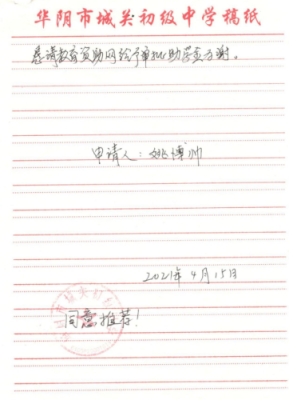 华阴市城关初级中学稿纸
恳请教育资助网给予审批助学金为谢。
申请人：姚博帅
2021年4月15日
同意推荐！